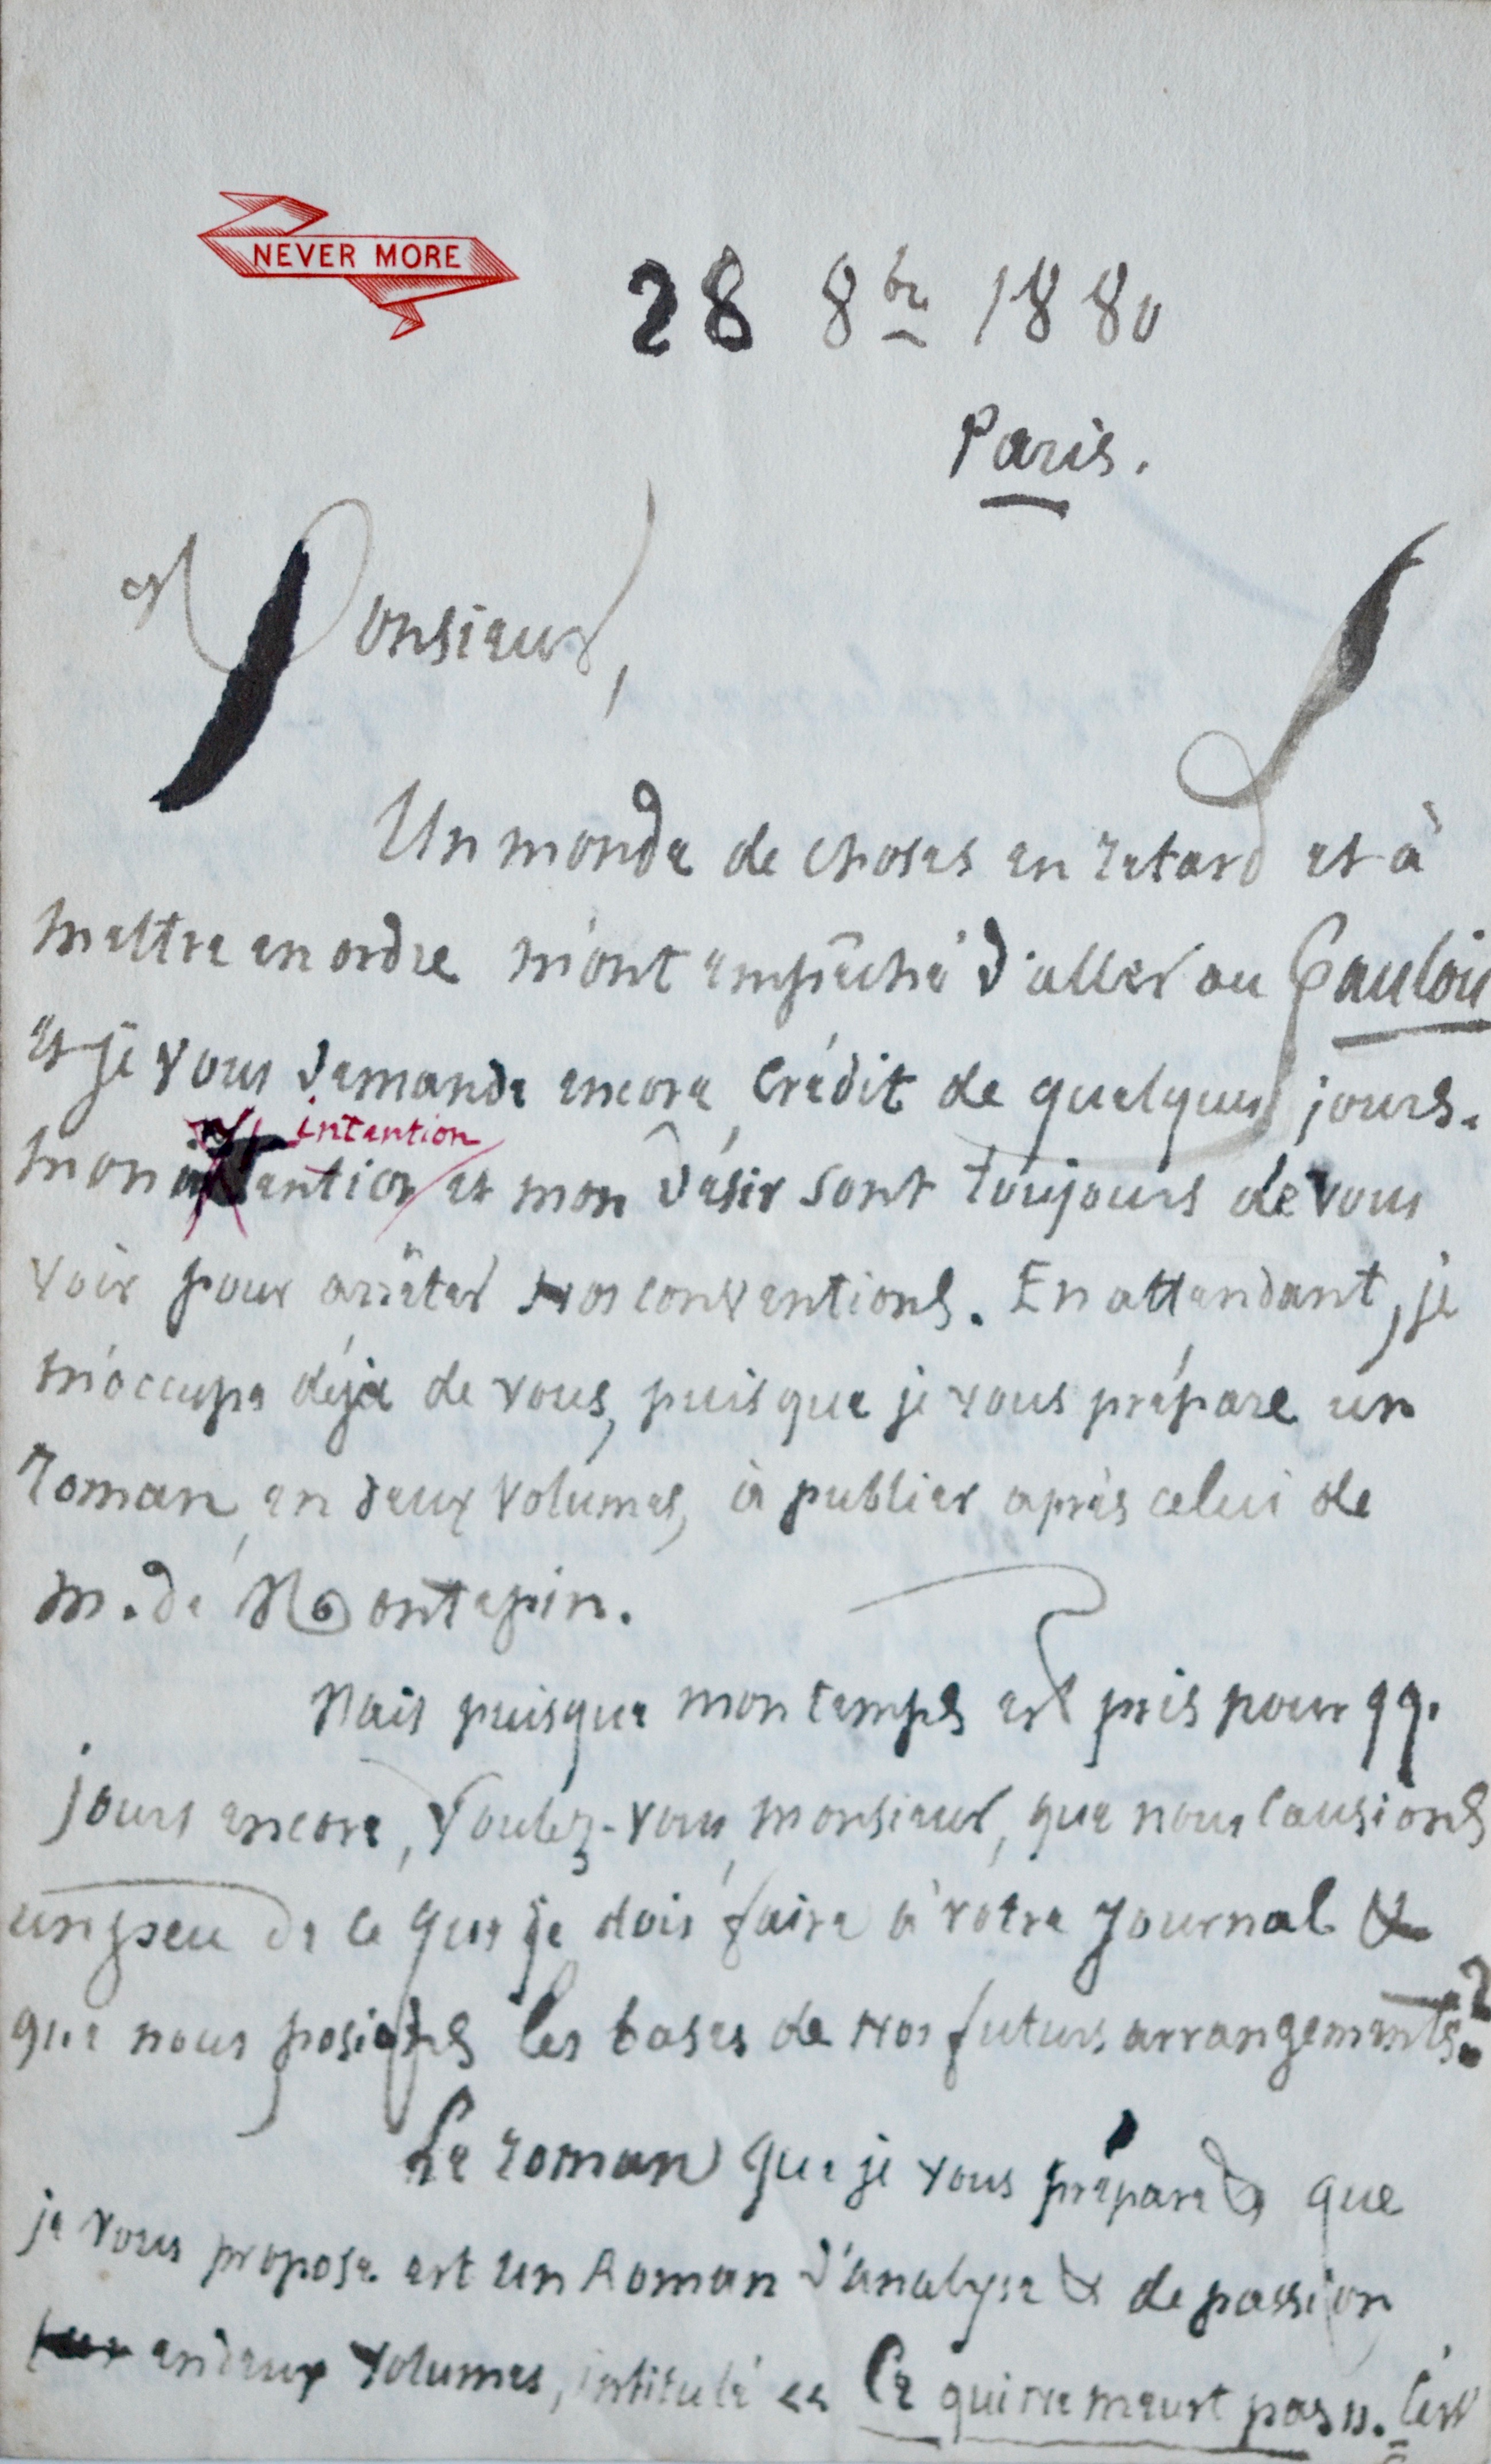 NEVER MORE
28 8bre 1880
Paris.
Monsieur,
Un monde de choses en retard et à
mettre en ordre m'ont empêché d'aller au Gaulois
et je vous demande encore crédit de quelques jours.
intention
mon intention et mon désir sont toujours de vous
voir pour arrêter nos conventions. En attendant, je
m'occupe déjà de vous, puisque je vous prépare un
roman, en deux volumes, à publier après celui de
M. de Montepin.
Mais puisque mon temps est pris pour qq.
jours encore, voulez-vous, monsieur, que nous causions
un peu de ce que je dois faire à votre journal &
que nous posions les bases de nos futurs arrangements?
Le roman que je vous prépare & que
je vous propose est un Roman d'analyse & de passion
en deux volumes, intitulé « Ce qui ne meurt pas ». C'est